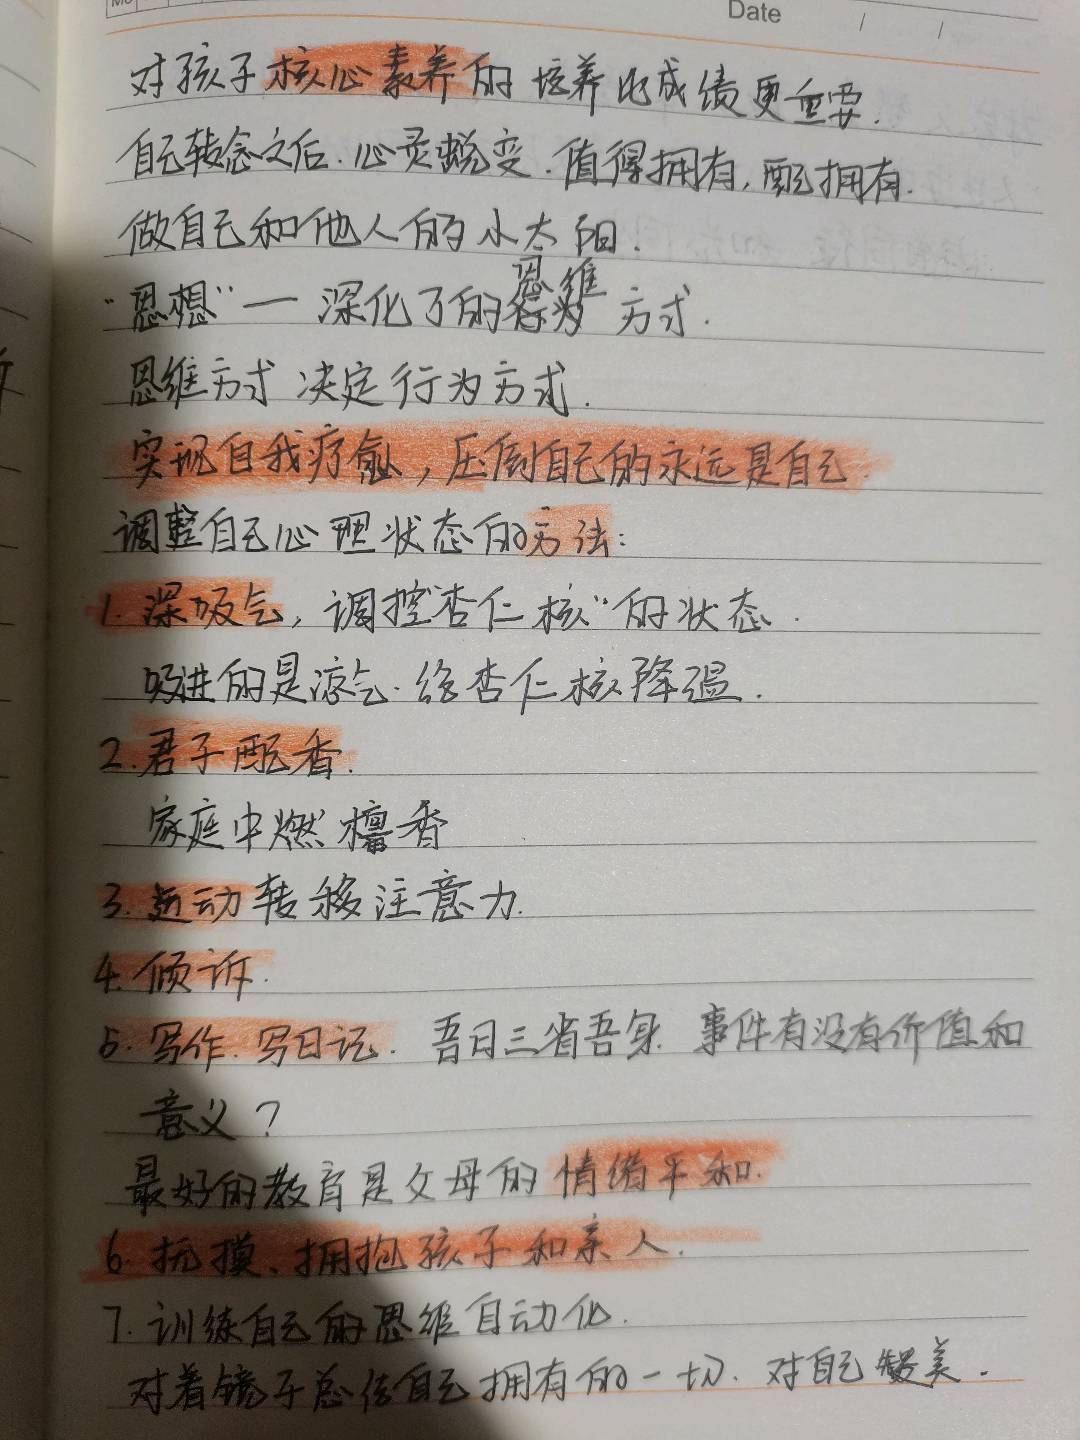 Date
对孩子核心素养的培养比成绩更重要.
自己转念之后.心灵蜕变.值得拥有,配拥有.
做自己和他人的小太阳.
“思想”— 深化了的思维方式.
思维方式 决定行为方式.
实现自我疗愈,压倒自己的永远是自己.
调整自己心理状态的方法:
1.深吸气,调控“杏仁核”的状态.
吸进的是凉气.给杏仁核降温.
2.君子配香.
家庭中燃檀香
3.运动转移注意力.
4.倾诉.
5.写作.写日记. 吾日三省吾身. 事件有没有价值和
意义?
最好的教育是父母的情绪平和.
6.抚摸、拥抱孩子和亲人.
7.训练自己的思维自动化.
对着镜子总结自己拥有的一切.对自己赞美.